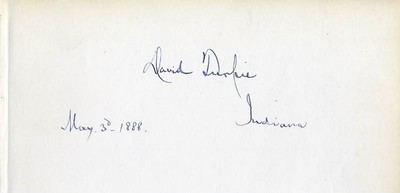 David Turpie
Indiana
May. 3ᵈ 1888.